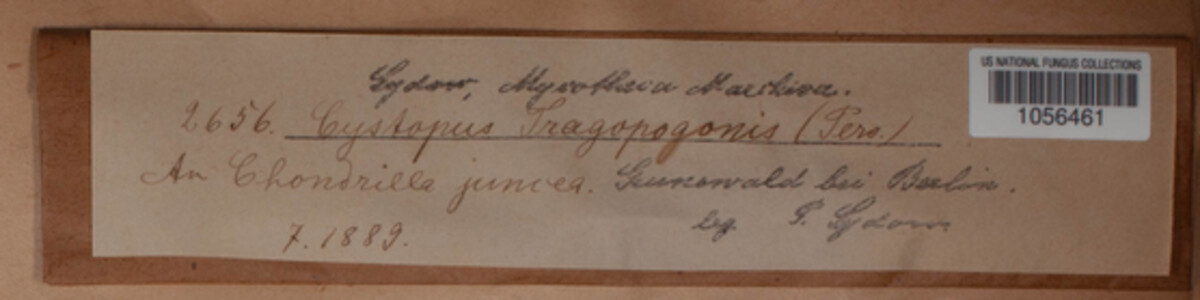 Sydow, Mycotheca Marchica.
2656. Cystopus Tragopogonis (Pers.)
An Chondrilla juncea. Grunewald bei Berlin.
7. 1889.
leg. P. Sydow
US NATIONAL FUNGUS COLLECTIONS
1056461